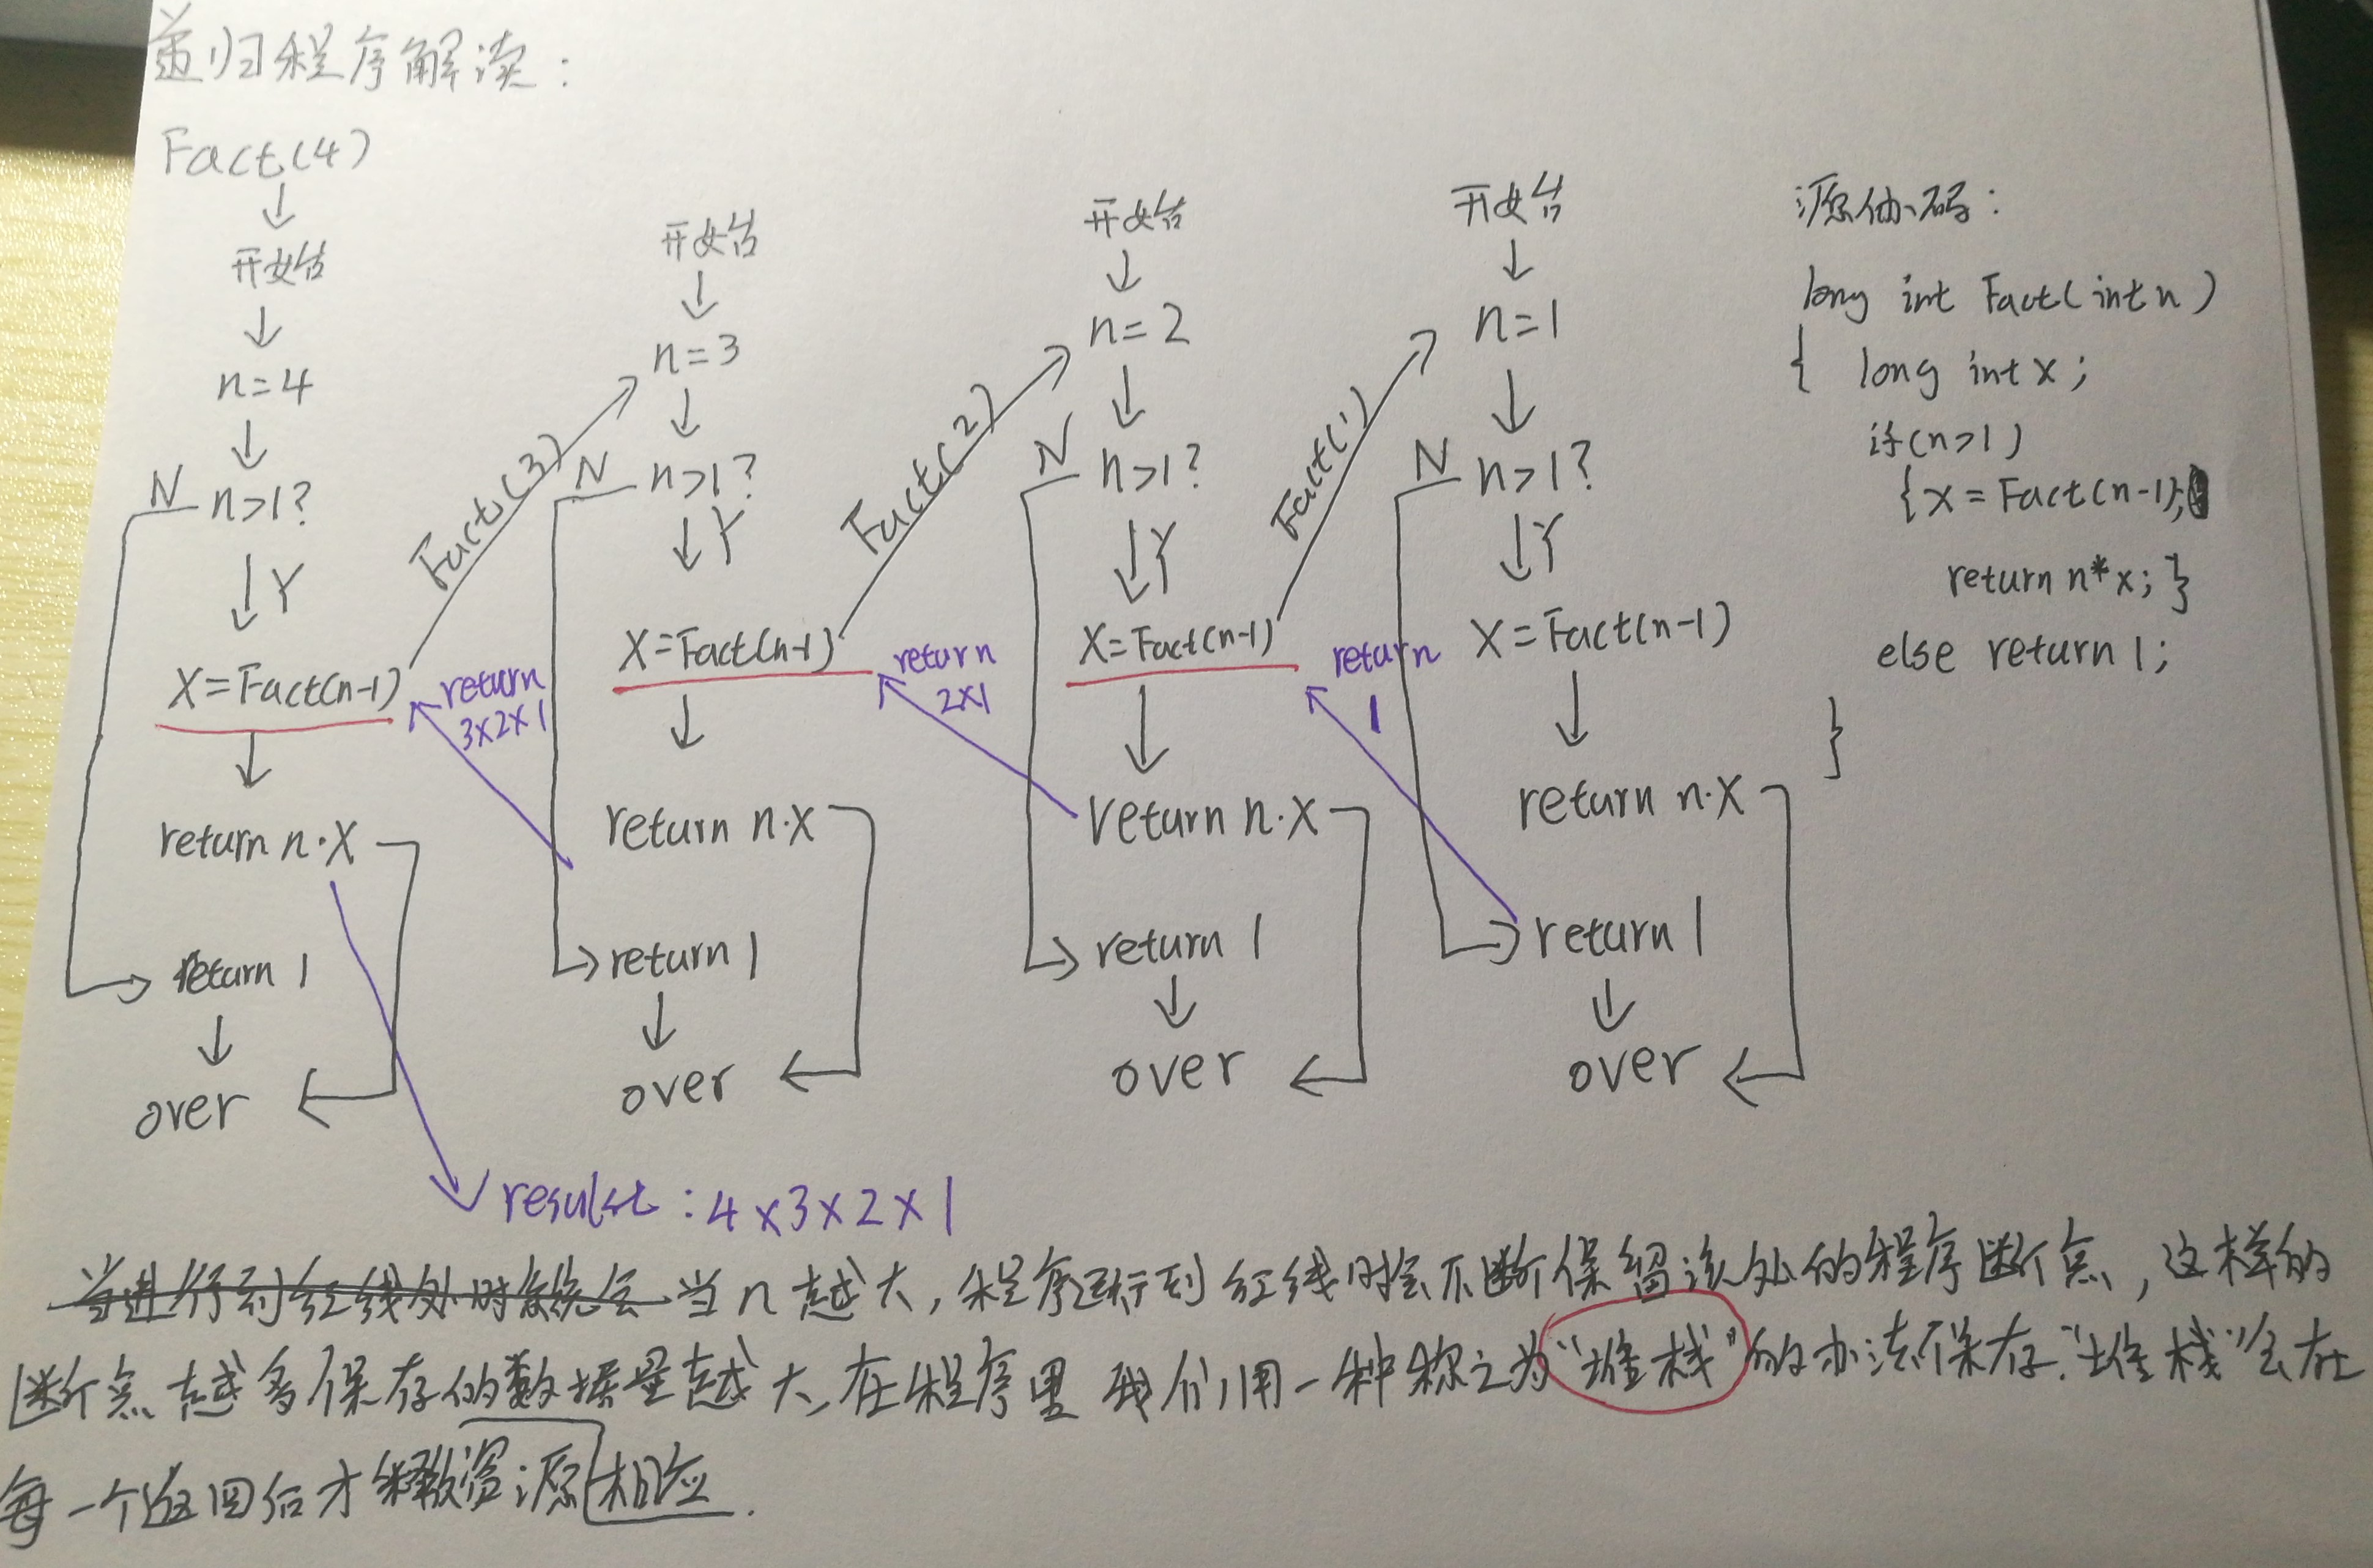 递归程序解读：
Fact(4)
开始
n=4
N
n>1?
Y
X=Fact(n-1)
return n·X
return 1
over
Fact(3)
return
3×2×1
开始
n=3
N
n>1?
Y
X=Fact(n-1)
return n·X
return 1
over
Fact(2)
return
2×1
开始
n=2
N
n>1?
Y
X=Fact(n-1)
return n·X
return 1
over
Fact(1)
return
1
开始
n=1
N
n>1?
Y
X=Fact(n-1)
return n·X
return 1
over
源代码：
long int Fact(int n)
{ long int x;
if(n>1)
{x=Fact(n-1);
return n*x;}
else return 1;
}
result:4×3×2×1
当进行到红线处时系统会 当n越大，程序运行到红线时会不断保留该处的程序断点，这样的
断点越多保存的数据量越大，在程序里我们用一种称之为“堆栈”的办法保存.“堆栈”会在
每一个返回后才释放资源相应.